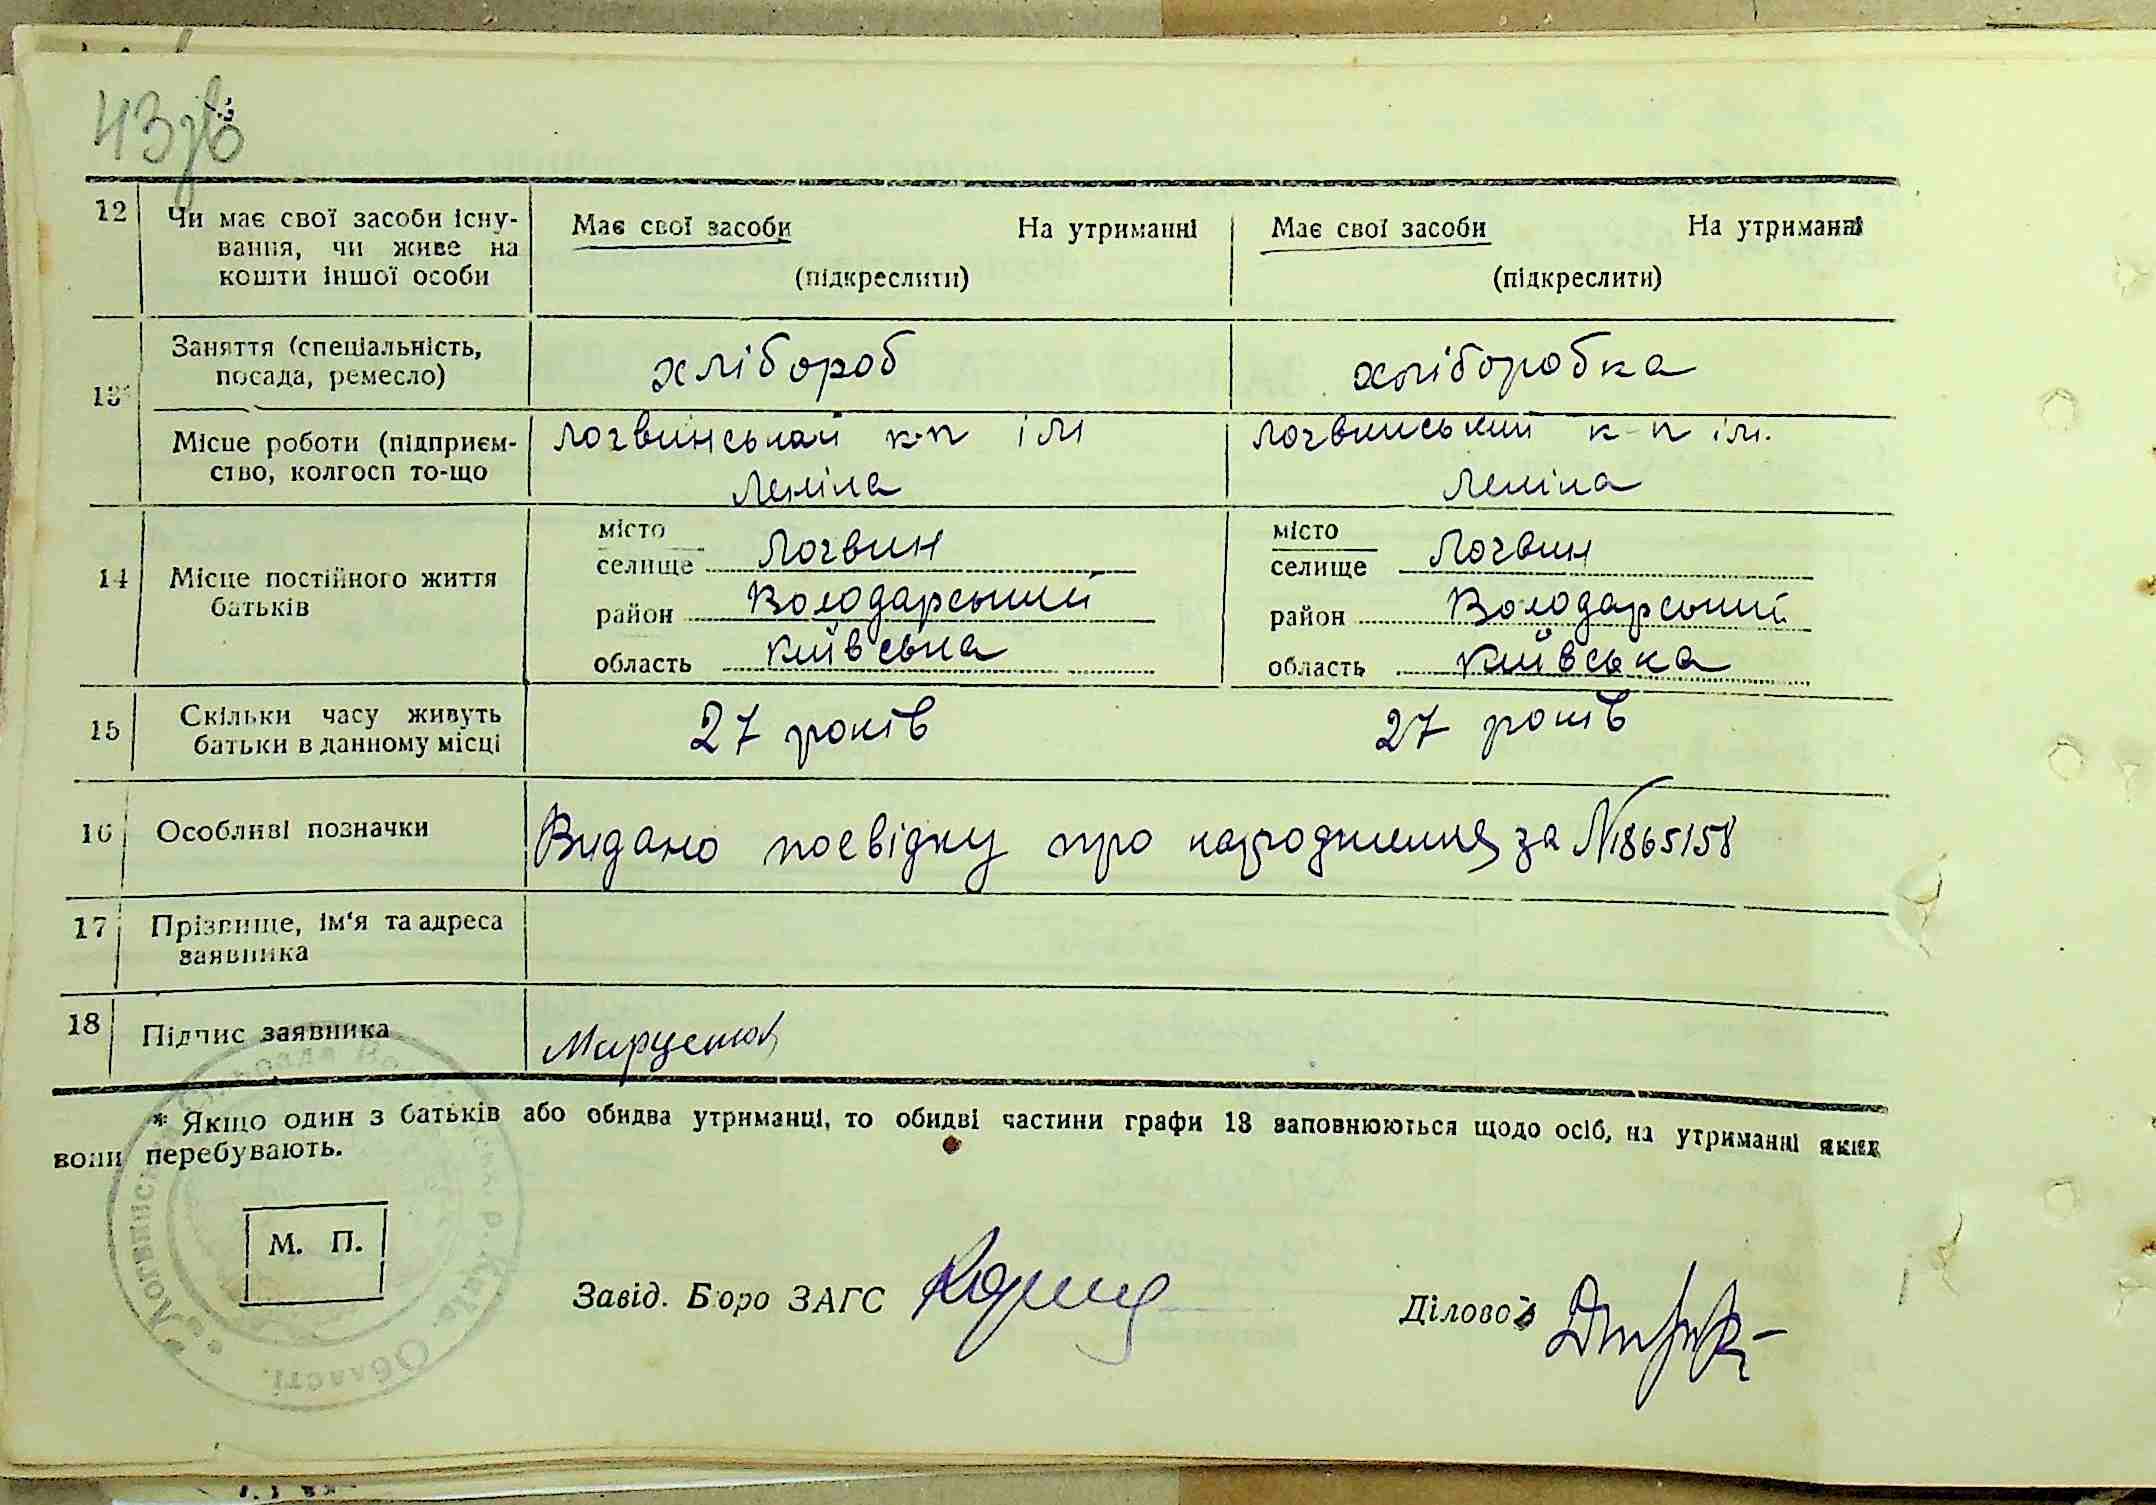 43зв
12 Чи має свої засоби існу-
вання, чи живе на
кошти іншої особи
Має свої засоби На утриманні
(підкреслити)
Має свої засоби На утриманні
(підкреслити)
13*
Заняття (спеціальність,
посада, ремесло)
хлібороб
хліборобка
Місце роботи (підприєм-
ство, колгосп то-що
Логвинський к-п ім
Леніна
Логвинський к-п ім.
Леніна
14 Місце постійного життя
батьків
місто
селище Логвин
район Володарський
область Київська
місто
селище Логвин
район Володарський
область Київська
15 Скільки часу живуть
батьки в данному місці
27 років
27 років
16 Особливі позначки
Видано посвідку про народження за №1865158
17 Прізвище, ім'я та адреса
заявника
18 Підпис заявника
* Якщо один з батьків або обидва утриманці, то обидві частини графи 13 заповнюються щодо осіб, на утриманні яких
вони перебувають.
М. П.
Завід. Бюро ЗАГС
Діловод
Області.